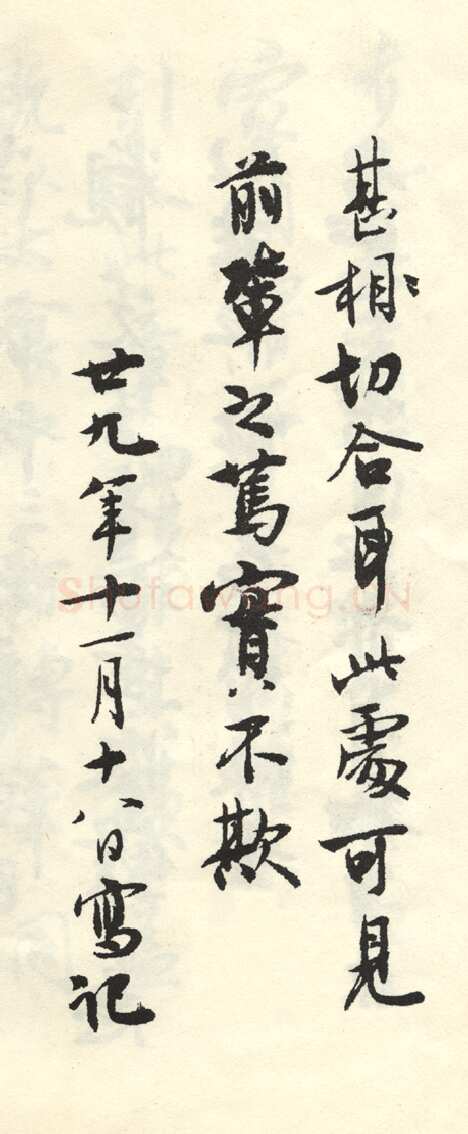 甚相切合耳此處可見
前輩之篤實不欺
廿九年十一月十八日寫記
Shufawang.CN